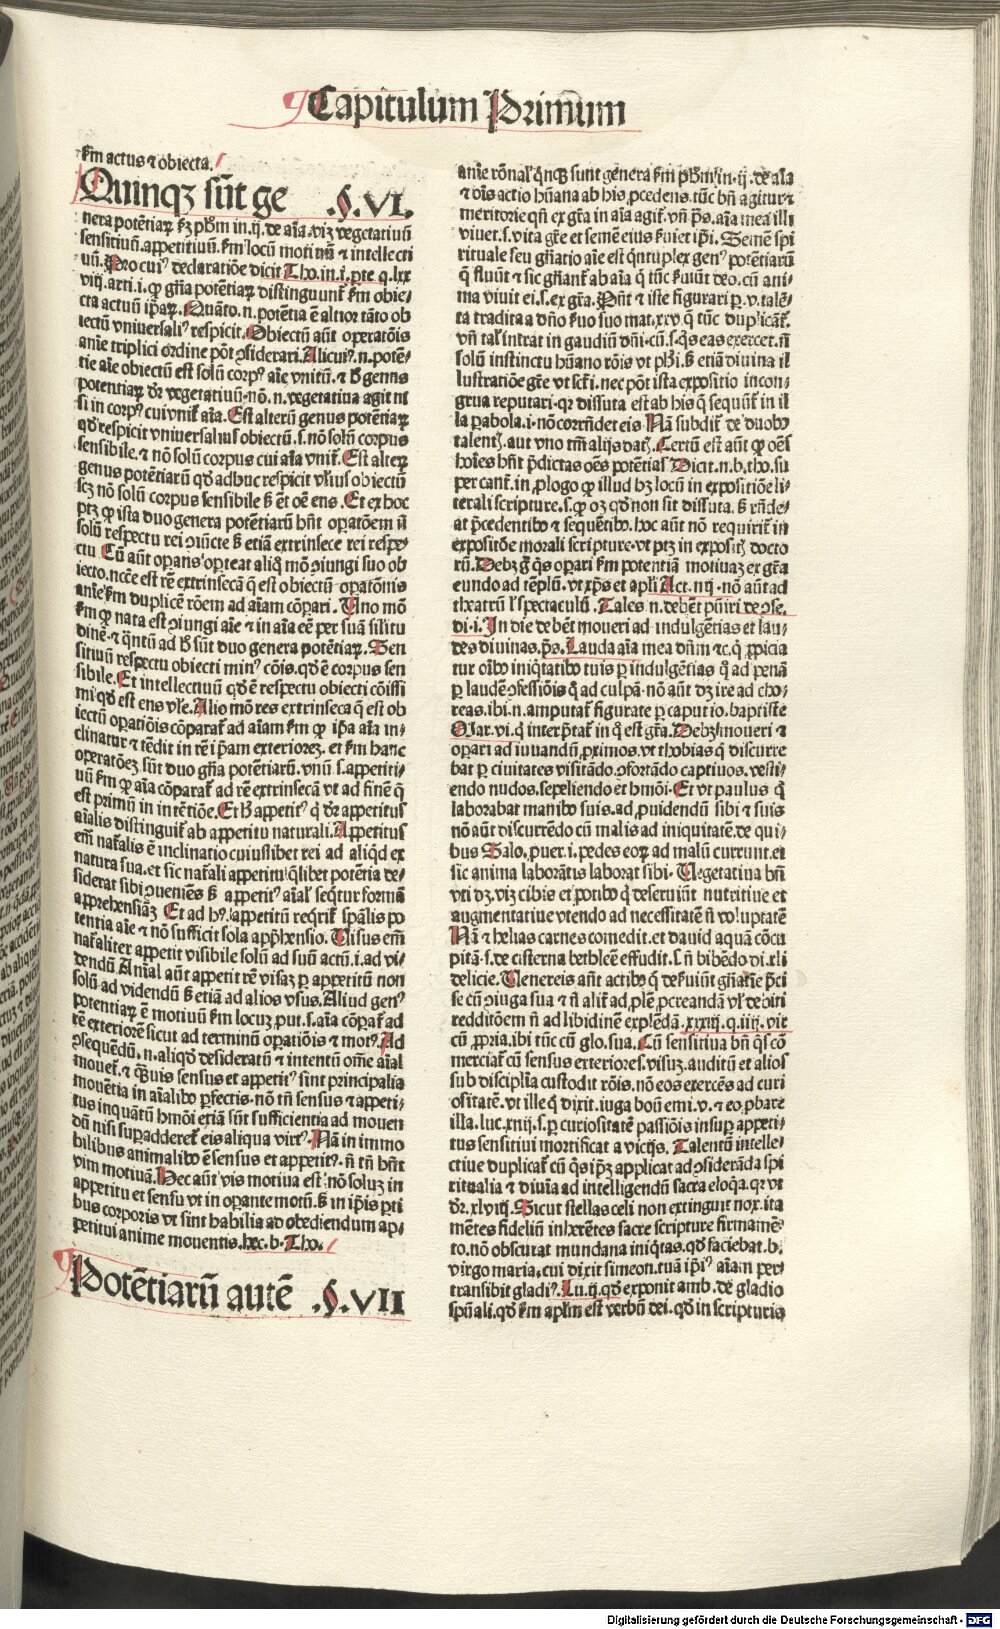 Capitulum Primum
s̄m actus ⁊ obiecta.
Quinqꝫ sūt ge .§.VI.
nera potētiaꝝ s̄ꝫ ph̄m in.ij.de aīa.viꝫ vegetatiuū
sensitiuū.appetitiuū.s̄m locū motiuū ⁊ intellecti
uū.Pro cuiꝰ declaratiōe dicit Tho.in.i.ꝑte q.lxx
viij.arti.i.ꝙ gn̄a potētiaꝝ distinguunt᷑ s̄m obie-
cta actuū ip̄aꝝ.Quāto.n.potētia ē altior tāto ob
iectū vniuersaliꝰ respicit.Obiectū aūt operatōis
aīe triplici ordine pōt ꝯsiderari.Alicuiꝰ.n.potē-
tie aīe obiectū est solū corpꝰ aīe vnitū.⁊ ꝫ genus
potentiaꝝ dr̄ vegetatiuū.nō.n.vegetatiua agit ni
si in corpꝰ cui vnit᷑ aīa.Est alterū genus potētiaꝝ
qd̄ respicit vniuersaliꝰ obiectū.s.nō solū corpus
sensibile.⁊ nō solū corpus cui aīa vnit᷑.Est alteꝝ
genus potētiarū qd̄ adhuc respicit vl̄ius obiectū
scꝫ nō solū corpus sensibile s̄ ēt oē ens.Et ex hoc
ptꝫ ꝙ ista duo genera potētiarū hn̄t oꝑatōem n̄
solū respectu rei ꝯiūcte s̄ etiā extrinsece rei respe-
ctu Cū aūt oꝑans oꝑteat aliq̄ mō ꝯiungi suo ob
iecto.nc̄ce est rē extrinsecā q̄ est obiectū oꝑatōnis
aīe s̄m duplicē rōem ad aīam cōꝑari.Uno mō
s̄m ꝙ nata est ꝯiungi aīe ⁊ in aīa eē per suā silitu
dinē.⁊ q̄ntū ad ꝫ sūt duo genera potētiaꝝ.Sen
sitiuū respectu obiecti minꝰ cōis.qd̄ ē corpus sen
sibile.Et intellectiuū qd̄ ē respectu obiecti cōissi
mi qd̄ est ens vl̄e.Alio mō res extrinseca q̄ est ob
iectū oꝑatiōis cōparat᷑ ad aīam s̄m ꝙ ip̄a aīa in-
clinatur ⁊ tēdit in rē ip̄am exteriorē.et s̄m hanc
operatōeꝫ sūt duo gn̄a potētiarū.vnū.s.appetiti-
uū s̄m ꝙ aīa cōparat᷑ ad rē extrinsecā vt ad finē q̄
est primū in intētiōe.Et ꝫ appetitꝰ q̄ dr̄ appetitus
aīalis distinguit᷑ ab appetitu naturali.Appetitus
em̄ nat᷑alis ē inclinatio cuiuslibet rei ad aliqd̄ ex
natura sua.et sic nat᷑ali appetitu q̄libet potētia de-
siderat sibi ꝯueniēs s̄ appetitꝰ aīal̓ seq̄tur formā
apprehensiāꝫ Et ad hꝰ.appetitū reqrit᷑ sp̄alis po
tentia aīe ⁊ nō sufficit sola app̄hensio.Uisus em̄
nat᷑aliter appetit visibile solū ad suū actū.i.ad vi-
dendū Animal aūt appetit rē visaꝫ ꝑ appetitū non
solū ad videndū s̄ etiā ad alios vsus.Aliud genꝰ
potentiaꝝ ē motiuū s̄m locuꝫ ꝓut.s.aīa cōꝑat᷑ ad
rē exteriorē sicut ad terminū oꝑatiōis ⁊ motꝰ.Ad
ꝯsequēdū.n.aliqd̄ desideratū ⁊ intentū om̄e aīal
mouet᷑.⁊ q̄uis sensus et appetitꝰ sint principalia
mouētia in aīalibꝰ ꝑfectis.nō tn̄ sensus ⁊ appeti-
tus inquātū hmōi etiā sūt sufficientia ad mouen
dū nisi suꝑadderet᷑ eis aliqua virtꝰ.Nā in immo
bilibus animalibꝰ ē sensus et appetitꝰ.n̄ tn̄ hn̄t
vim motiuā.Hec aūt vis motiua est nō soluꝫ in
appetitu et sensu vt in oꝑante motū.s̄ in ip̄is ꝑti
bus corporis vt sint habilia ad obediendum ap-
petitui anime mouentis.hec.b.Tho.
Potētiarū autē .§.VII
anīe rōnal̓ q̄nqꝫ sunt genera s̄m ph̄m in.ij.de aīa
⁊ oīs actio hūana ab his ꝓcedens.tūc bn̄ agitur ⁊
meritorie qn̄ ex gr̄a in aīa agit᷑.vn̄ ps̄.aīa mea illi
viuet.s.vita gr̄e et semē eius ẜuiet ip̄i.Semē spi
rituale seu gn̄atio aīe est q̄ntuplex genꝰ potētiarū
q̄ fluūt ⁊ sic gn̄ant᷑ ab aīa q̄ tūc ẜuiūt deo.cū ani-
ma viuit ei.s.ex gr̄a.Pn̄t ⁊ iste figurari ꝑ.v.talē-
ta tradita a dn̄o ẜuo suo mat.xxv.q̄ tūc duplicāt᷑.
vn̄ tal̓ intrat in gaudiū dn̄i.cū.s.q̄s eas exercet.n̄
solū instinctu hūano rōis vt ph̄i.s̄ etiā diuina il
lustratiōe gr̄e vt sct̄i.nec pōt ista expositio incon-
grua reputari.qꝛ dissuta est ab his q̄ sequūt᷑ in il
la ꝑabola.i.nō corrn̄det eis.Nā subdit᷑ de duobꝰ
talentꝭ.aut vno tm̄ alijs datꝭ.Certū est aūt ꝙ oēs
hoīes hn̄t p̄dictas oēs potētias Dicit.n.b.tho.su
per cant᷑.in ꝓlogo ꝙ illud hꝫ locū in expositiōe li-
terali scripture.s.ꝙ oꝫ qd̄ non sit dissuta.s̄ rn̄de-
at p̄cedentibꝰ ⁊ sequētibꝰ.hoc aūt nō requirit᷑ in
expositōe morali scripture.vt ptꝫ in expositꝭ docto
rū.Debꝫ g̊ q̄s oꝑari s̄m potentiā motiuaꝫ ex gr̄a
eundo ad tēplū.vt xp̄s et apl̄i Act.iiij.nō aūt ad
theatrū l̓ spectaculū.Tales.n.debēt pūiri de ꝯse.
di.i.In die debēt moueri ad indulgētias et lau-
des diuinas.ps̄.Lauda aīa mea dn̄m ⁊c.q̄ ꝓpicia
tur oībꝰ iniq̄tatibꝰ tuis ꝑ indulgētias q̄ ad penā
ꝑ laudē ꝯfessiōis q̄ ad culpā.nō aūt dꝫ ire ad cho-
reas.ibi.n.amputat᷑ figurate ꝑ caput io.baptiste
Mar.vi.q̄ interp̄tat᷑ in q̄ est gr̄a.Debꝫ moueri ⁊
oꝑari ad iuuandū ꝓximos.vt thobias q̄ discurre
bat ꝑ ciuitates visitādo.ꝯfortādo captiuos.vesti-
endo nudos.sepeliendo et hmōi.Et vt paulus q̄
laborabat manibꝰ suis.ad ꝓuidendū sibi ⁊ suis
nō aūt discurrēdo cū malis ad iniquitatē.de qui-
bus Salo.ꝓuer.i.pedes eoꝝ ad malū currunt.et
sic anima laborātis laborat sibi.Uegetatiua bn̄
vti dꝫ.viꝫ cibis et potibꝰ q̄ deseruiūt nutritiue et
augmentatiue vtendo ad necessitatē n̄ voluptatē
Nā ⁊ helias carnes comedit.et dauid aquā cōcu
pitā.s.de cisterna betbleē effudit.s̄ n̄ bibēdo vi.xli
delicie.Uenereis aūt actibꝰ q̄ deẜuiūt gn̄atiōe p̄ci
se cū ꝯiuge sua ⁊ n̄ alit᷑ ad ꝓlē ꝓcreandā vl̓ debiti
redditōem n̄ ad libidinē explēdā.xxxij.q.iiij.vir
cū ꝓpria.ibi tūc cū glo.sua.Cū sensitiua bn̄ q̄s cō
merciat᷑ cū sensus exteriores.visuꝫ.auditū et alios
sub disciplīa custodit rōis.nō eos exercēs ad curi
ositatē.vt ille q̄ dixit.iuga boū emi.v.⁊ eo ꝓbare
illa.luc.xiiij.s.ꝑ curiositatē passiōis insuꝑ appeti-
tus sensitiui mortificat a vicijs.Talentū intelle-
ctiue duplicat᷑ cū q̄s ip̄ꝫ applicat ad ꝯsiderāda spi
ritualia ⁊ diuīa ad intelligendū sacra eloq̄a.qꝛ vt
dr̄.xlviij.Sicut stellas celi non extinguit nox.ita
mētes fideliū inherētes sacre scripture firmamē-
to.nō obscurat mundana iniq̄tas.qd̄ faciebat.b.
virgo maria.cui dixit simeon.tuā ip̄iꝰ aīam per-
transibit gladiꝰ.Lu.ij.qd̄ exponit amb.de gladio
spūali.qd̄ s̄m apl̄m est verbū dei.qd̄ in scripturis
Digitalisierung gefördert durch die Deutsche Forschungsgemeinschaft - DFG